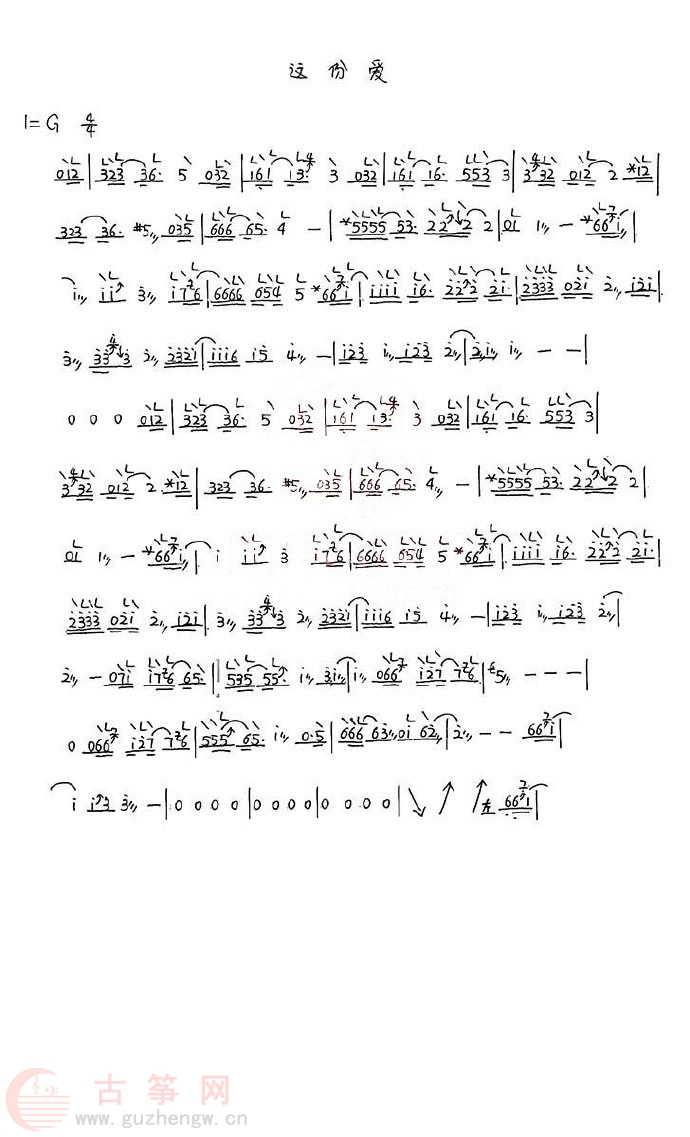 这份爱
1=G 4/4
012|323 36. 5 032|161 13. 3 032|161 16. 553 3|3 32 012 2 *12|
323 36. #5 035|666 65. 4 —|*5555 53. 22 2 2|01 1 — *66 i|
i ii 3 i7 6|6666 654 5 *66 i|iiii i6. 22 2 2i|2333 02i 2 i2i|
3 33 3 2 232i|iii6 i5 4 —|i23 i i23 2|2 i i — —|
0 0 0 012|323 36. 5 032|161 13. 3 032|161 16. 553 3|
3 32 012 2 *12|323 36. #5 035|666 65. 4 —|*5555 53. 22 2 2|
01 1 — *66 i|i ii 3 i7 6|6666 654 5 *66 i|iiii i6. 22 2 2i.|
2333 02i 2 i2i|3 33 3 2 232i|iii6 i5 4 —|i23 i i23 2|
2 — 07i i7 6 65.|535 55 i 3i|i 066 i27 7 6|5 — — —|
0 066 i27 7 6|555 65. i 0.5|666 63 0i 62|2 — — 66 i|
i i 3 3 —|0 0 0 0|0 0 0 0|0 0 0 0|↘ ↗ ↗左 66 i|
古筝网
www.guzhengw.cn